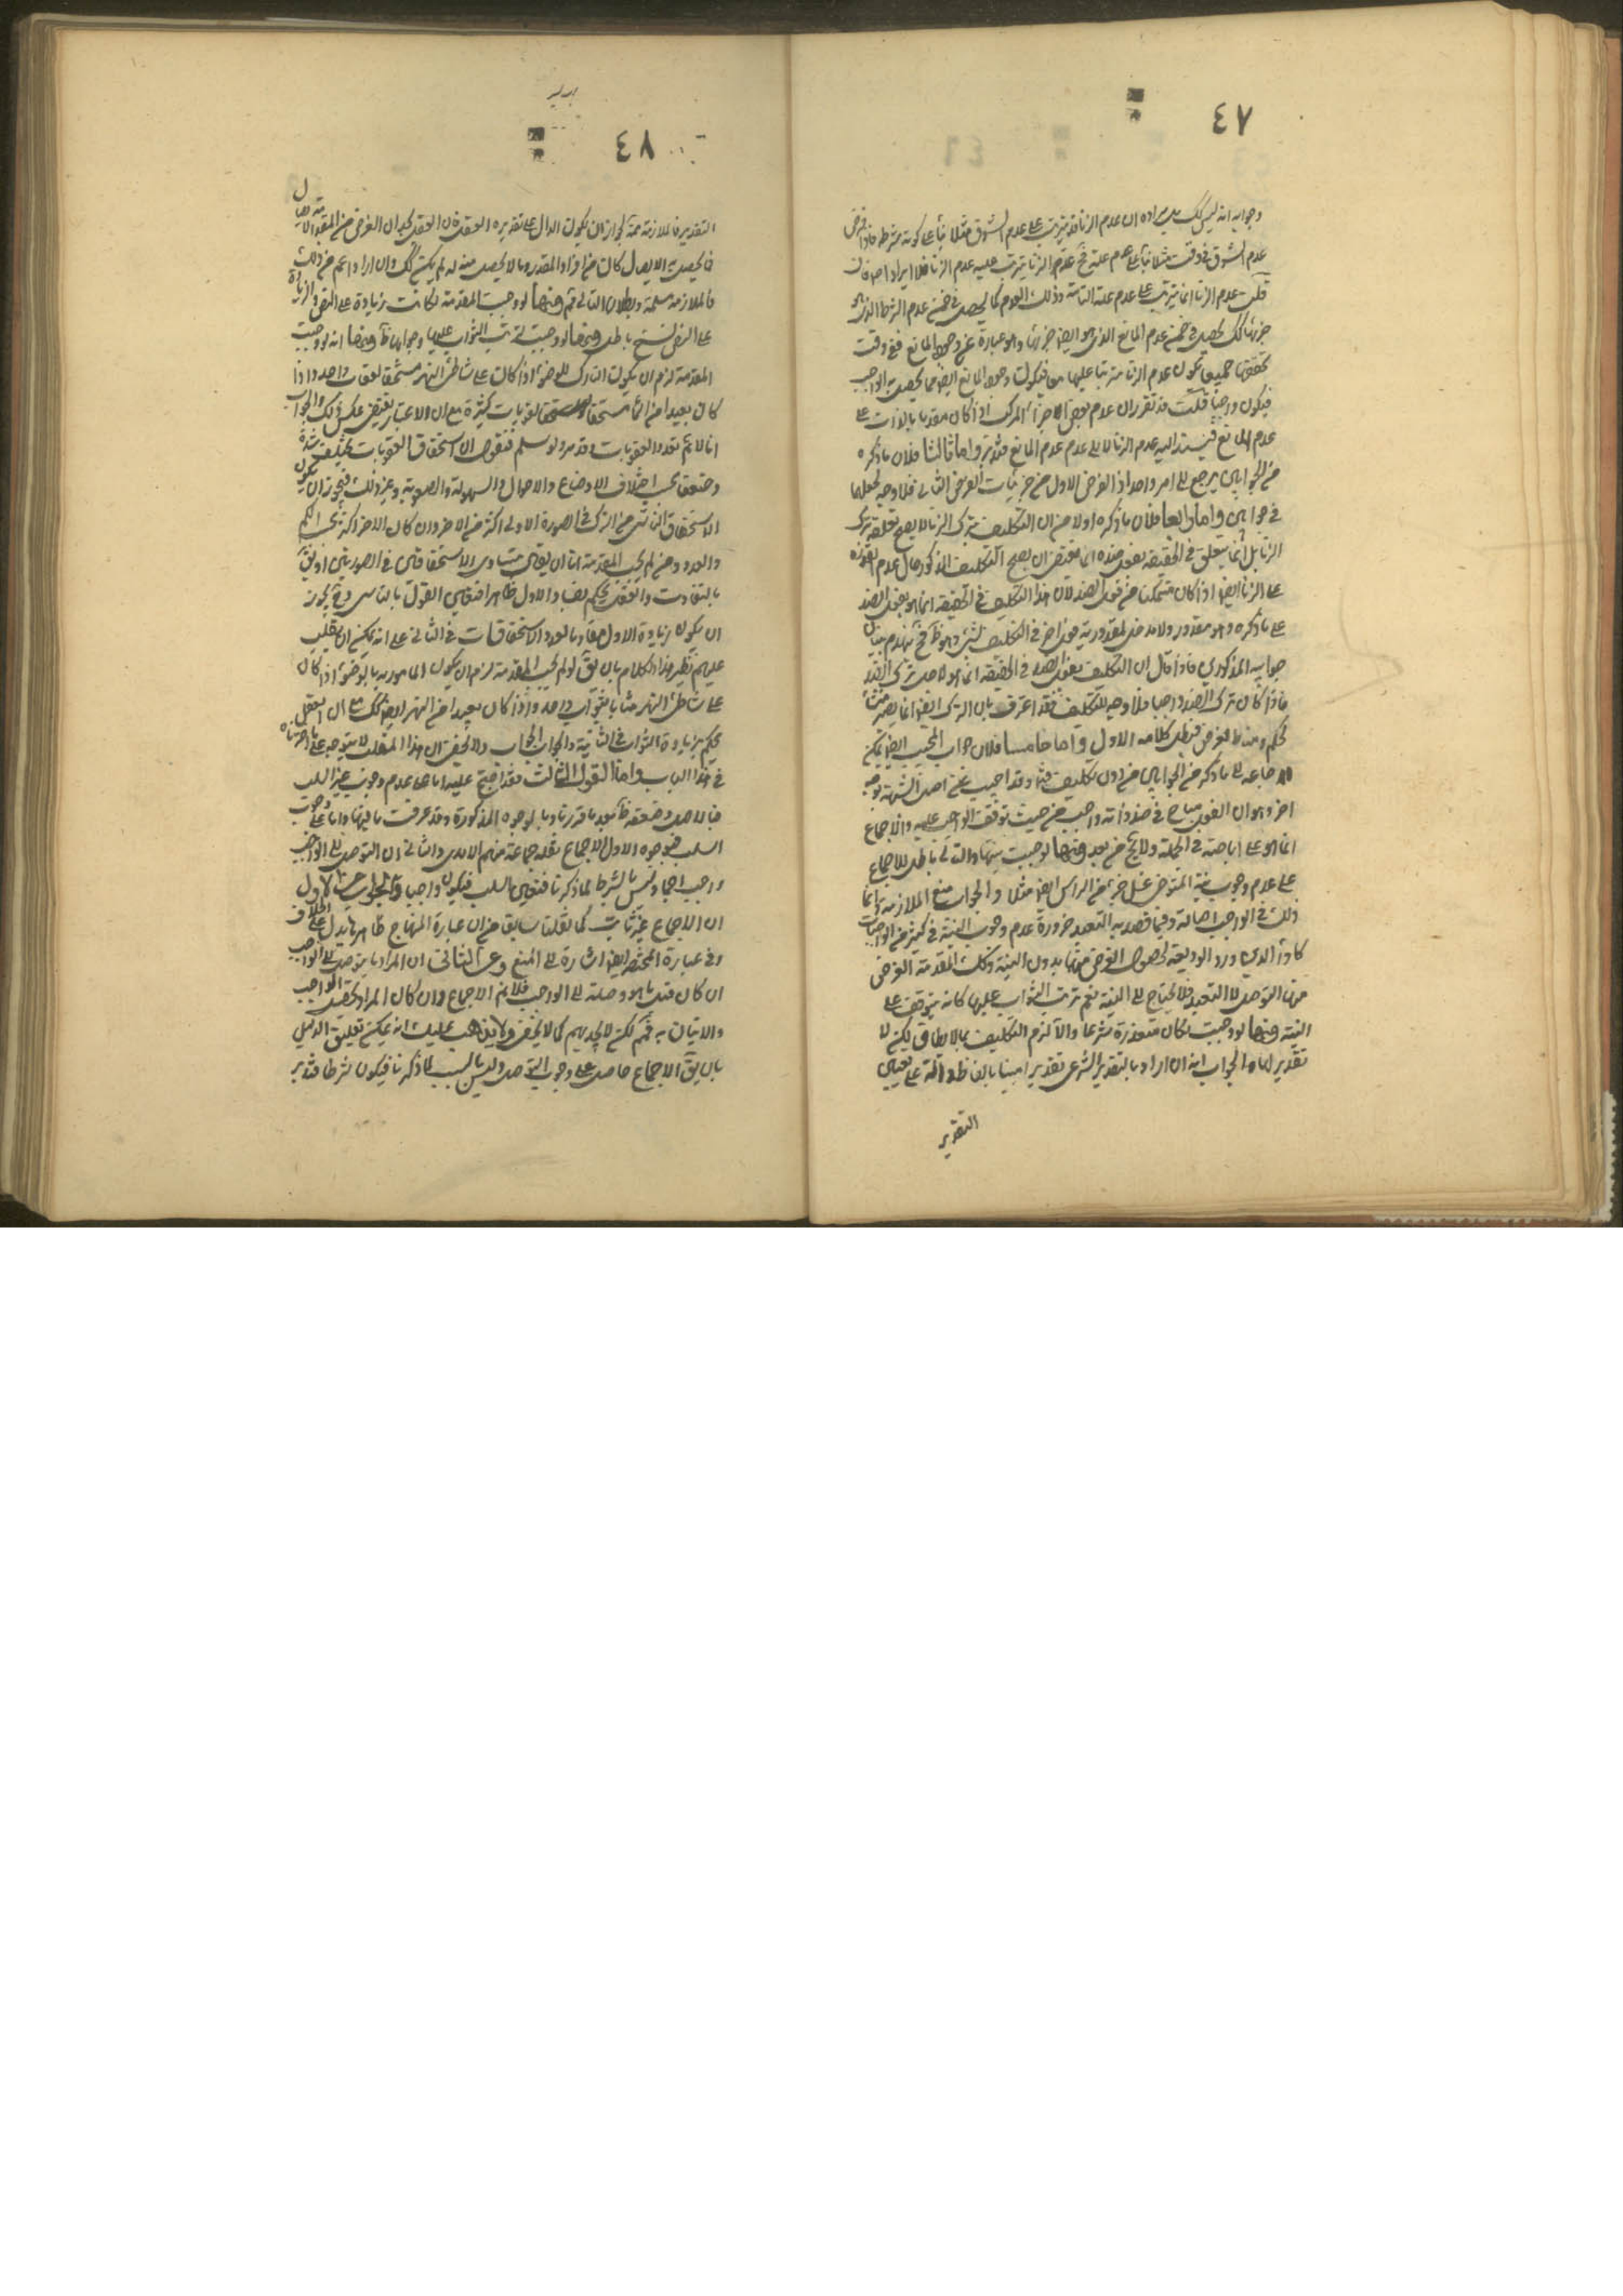 ٤٧
وجوابه انه ليس كك بل مراده ان عدم الزنا قد يترتب على عدم الشوق مثلا بناء على كونه شرطه فاذا فرض
عدم الشوق في وقت مثلا بناء على عدم علته فعدم الزنا يترتب عليه عدم الزنا فلا ايراد اصلا فان
قلت عدم الزنا انما يترتب على عدم علته التامة وذلك العدم كما يحصل في ضمن عدم الشرط الذي هو
جزئها كك يحصل في ضمن عدم المانع الذي هو ايضا جزئها وهو عبارة عن وجود المانع ففي وقت
تحققهما جميعا يكون عدم الزنا مترتبا عليهما معا فيكون وجود المانع ايضا مما يحصل به الواجب
فيكون واجبا قلت قد تقرر ان عدم بعض الاجزاء المركب اذا كان مقدما بالذات على
عدم المانع فيستند اليه عدم الزنا لا الى عدم عدم المانع فتدبر واما ثالثا فلان ما ذكره
من الجوابين يرجع الى امر واحد اذ الفرض الاول من جزئيات الفرض الثاني فلا وجه لجعلهما
جوابين واما رابعا فلان ما ذكره اولا من ان التكليف بترك الزنا لا يصح تعلقه بترك
الزنا بل انما يتعلق في الحقيقة بفعل ضده انما يقتضي ان يصح التكليف المذكور حال عدم القدرة
على الزنا ايضا اذا كان متمكنا من فعل الضد لان هذا التكليف في الحقيقة انما هو بفعل الضد
على ما ذكره وهو مقدور ولا مدخل لمقدورية جزء اخر في التكليف لشيء وهو ظ فح ينهدم بنيان
جوابيه المذكورين فاذا قال ان التكليف بفعل الضد في الحقيقة انما هو لاجل ترك الضد
فاذا كان ترك الضد واجبا فلا وجه للتكليف فقد اعترف بان الترك ايضا انما يصير منشأ
للحكم ومناط الغرض فبطل كلامه الاول واما خامسا فلان جواب المجيب ايضا يمكن
ارجاعه الى ما ذكره من الجوابين من دون تكليف فتدبر وقد اجيب عن اصل الشبهة بوجه
اخر وهو ان الفعل مباح في حد ذاته واجب من حيث توقف الواجب عليه والاجماع
انما هو على اباحته في الجملة ولا يخ من بعد ومنها لو وجبت نيتها والتالي باطل للاجماع
على عدم وجوب نية المتوضي غسل جزء من الراس ايضا مثلا والجواب منع الملازمة وانما
ذلك في الواجب اصالة وفيما قصد به التعبد ضرورة عدم وجوب النية في كثير من الواجبات
كاداء الدين ورد الوديعة لحصول الغرض منها بدون النية وكك المقدمة الغرض
منها التوصل لا التعبد فلا يحتاج الى النية نعم ترتب الثواب عليها كانه يتوقف على
النية ومنها لو وجبت لكان متعذرة شرعا والا لزم التكليف بما لا يطاق لكن لا
تقدير لها والجواب انه ان اراد بالتقدير الشرعي تقديرا مبينا بالفاظ دالة على تعيين
التقدير
٤٨
التقدير فالملازمة ممنوعة لجواز ان يكون الدال على تقديره العقل فان العقل يجد ان الغرض من المقدمة الايصال
فما يحصل به الايصال كان من افراد المقدر وما لا يحصل منه لم يكن كك وان اراد اعم من ذلك
فالملازمة مسلمة وبطلان التالي ثم ومنها لو وجبت المقدمة لكانت زيادة على النص والزيادة
على النص نسخ باطل ومنها لو وجبت لترتب الثواب عليها وجوابه ظ ومنها انه لو وجبت
المقدمة لزم ان يكون التارك للوضوء اذا كان على شاطئ النهر مستحقا لعقاب واحد واذا
كان بعيدا من الماء مستحقا لعقوبات كثيرة مع ان الاعتبار يقتضي عكس ذلك والجواب
انا لا نم تعدد العقوبات وقد مر ولو سلم فنقول ان استحقاق العقوبات يختلف شدة
وضعفا بحسب اختلاف الاوضاع والاحوال والسهولة والصعوبة وغير ذلك فيجوز ان يكون
الاستحقاق الناشي من الترك في الصورة الاولى اكثر من الاخر وان كان الاخر اكثر بحسب الكم
والعدد ومن لم يجب المقدمة اما ان يقول بتساوي الاستحقاقين في الصورتين او يق
بالتفاوت والعقل يحكم بفساد الاول ظاهرا فتعين القول بالثاني وح يجوز
ان يكون زيادة الاول معارضا بالعدد الاستحقاقات في الثاني على انه يمكن ان يقلب
عليهم نظير هذا الكلام بان يق لو لم يجب المقدمة لزم ان يكون المامور به بالوضوء اذا كان
على شاطئ النهر مثابا بثواب واحد واذا كان بعيدا من النهر ايضا كك مع ان العقل
يحكم بزيادة الثواب في الثانية والجواب الجواب ولا يخفى ان هذا القلب لا يتوجه على ما اخترناه
في هذا الباب واما القول الثالث فقد احتج عليه اما على عدم وجوب غير السبب
فبالاصل وضعفه ظ بعد ما قررنا وبالوجوه المذكورة وقد عرفت ما فيها واما على وجوب
السبب فبوجوه الاول الاجماع نقله جماعة منهم الامدي والثاني ان التوصل الى الواجب
واجب اجماعا وليس بالشرط لما ذكرنا فتعين السبب فيكون واجبا والجواب عن الاول
ان الاجماع غير ثابت كما نقلنا سابقا من ان عبارة المنهاج ظاهرها يدل على الخلاف
وفي عبارة المختصر ايضا اشارة الى المنع وعن الثاني ان المراد بما يتوصل الى الواجب
ان كان فعل ما هو وصلة الى الواجب فلا نم الاجماع وان كان المراد تحصيل الواجب
والاتيان به فنعم لكن لا يجديهم كما لا يخفى ولا يذهب عليك انه يمكن تعليق الدليل
بان يق الاجماع حاصل على وجوب التوصل وليس بالسبب لما ذكرنا فيكون شرطا فتدبر